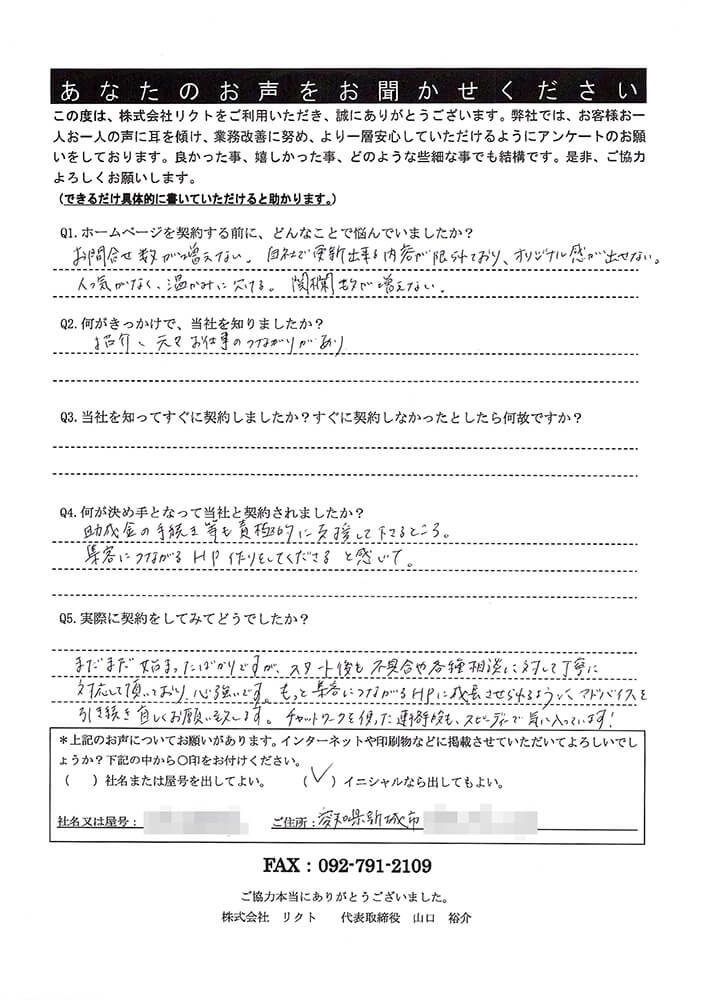 あなたのお声をお聞かせください
この度は、株式会社リクトをご利用いただき、誠にありがとうございます。弊社では、お客様お一
人お一人の声に耳を傾け、業務改善に努め、より一層安心していただけるようにアンケートのお願
いをしております。良かった事、嬉しかった事、どのような些細な事でも結構です。是非、ご協力
よろしくお願いします。
(できるだけ具体的に書いていただけると助かります。)
Q1.ホームページを契約する前に、どんなことで悩んでいましたか？
お問合せ数が増えない。自社で更新出来る内容が限られており、オリジナル感が出せない。
人気がなく、温かみに欠ける。閲欄数が増えない。
Q2.何がきっかけで、当社を知りましたか？
紹介、元々お仕事のつながりがあり
Q3.当社を知ってすぐに契約しましたか？すぐに契約しなかったとしたら何故ですか？
Q4.何が決め手となって当社と契約されましたか？
助成金の手続き等も積極的に支援して下さるところ。
集客につながるHP作りをしてくださると感じて。
Q5.実際に契約をしてみてどうでしたか？
まだまだ始まったばかりですが、スタート後も不具合や各種相談に対して丁寧に
対応して頂いており、心強いです。もっと集客につながるHPに成長させられるよう、アドバイスを
引き続き宜しくお願い致します。チャットワークを使った連絡手段も、スピーディーで気に入っています!
＊上記のお声についてお願いがあります。インターネットや印刷物などに掲載させていただいてよろしいでし
ょうか？下記の中から○印をお付けください。
（ ）社名または屋号を出してよい。 （✓）イニシャルなら出してもよい。
社名又は屋号： ご住所：愛知県新城市
FAX：092-791-2109
ご協力本当にありがとうございました。
株式会社 リクト 代表取締役 山口 裕介